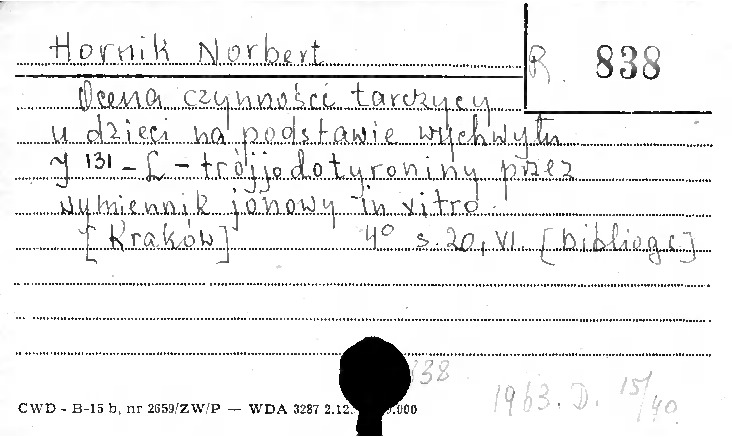 Hornik Norbert
R. 838
Ocena czynności tarczycy
u dzieci na podstawie wychwytu
J 131 - L - trójjodotyroniny przez
wymiennik jonowy in vitro.
[Kraków] 4° s. 20, VI. [bibliogr]
838
1963. D. 15/40
CWD - B-15 b, nr 2659/ZW/P — WDA 3287 2.12. .000